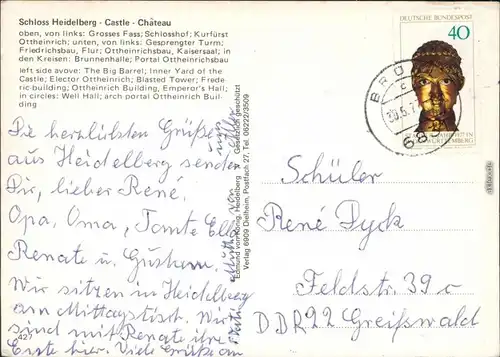 Schloss Heidelberg - Castle - Château
oben, von links: Grosses Fass; Schlosshof; Kurfürst
Ottheinrich; unten, von links: Gesprengter Turm;
Friedrichsbau, Flur; Ottheinrichsbau, Kaisersaal; in
den Kreisen: Brunnenhalle; Portal Ottheinrichsbau
left side avove: The Big Barrel; Inner Yard of the
Castle; Elector Ottheinrich; Blasted Tower; Frede-
ric-building; Ottheinrich Building, Emperor's Hall;
in circles: Well Hall; arch portal Ottheinrich Buil-
ding
DEUTSCHE BUNDESPOST
40
68
Die herzlichsten Grüße
aus Heidelberg senden
Dir, lieber René,
Opa, Oma, Tante Ella
Renate u.
Wir sitzen in Heidelberg
am Mittagstisch. Wir
sind mit Renate ihre
Erste hier. Viele Grüße an
427
Edmund von König, Heidelberg Gesetzlich geschützt
Verlag 6909 Dielheim, Postfach 27, Tel. 06222/3509
Schüler
René Dyck
Feldstr. 39c
DDR 22 Greifswald